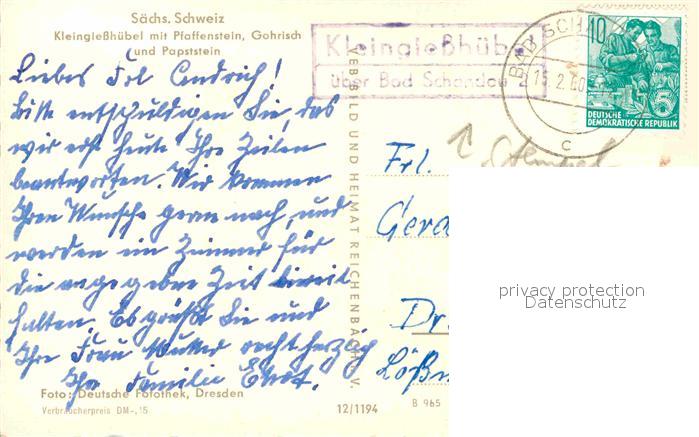 Sächs. Schweiz
Kleingießhübel mit Pfaffenstein, Gohrisch
und Papststein
Liebes Frl
Bitte entschuldigen Sie, das
wir erst heute Ihre Zeilen
beantworten. Wir kommen
Ihren Wunsche gern nach, und
werden ein Zimmer für
die angegebne Zeit bereit
halten. Es grüßt Sie und
Ihre Frau Mutter recht herzlich
Ihre Familie
Foto: Deutsche Fotothek, Dresden
Verbraucherpreis DM -,15
12/1194
B 965
VEB BILD UND HEIMAT REICHENBACH I. V.
Kleingießhübel
über Bad Schandau
BAD SCHA
15.2.60
c
10
5
DEUTSCHE
DEMOKRATISCHE REPUBLIK
Stempel
Frl.
Gerd
Dr
Lößn
privacy protection
Datenschutz